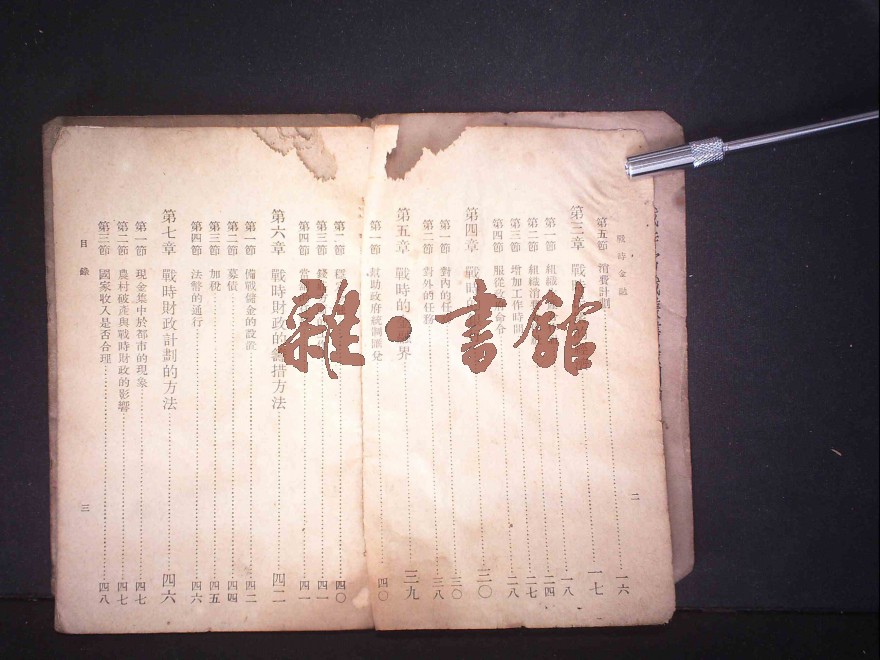 戰時金融
第五節 消費計劃……一六
第三章 戰時……一七
第一節 組織……一八
第二節 組織消費……二四
第三節 增加工作時間……二七
第四節 服從政府命令……二八
第四章 戰時的……三〇
第一節 對內的任務……三〇
第二節 對外的任務……三八
第五章 戰時的金融界……三九
第一節 幫助政府統制匯兌……四〇
第二節……四〇
第三節……四一
第四節……四一
第六章 戰時財政的籌措方法……四二
第一節 備戰儲金的設置……四二
第二節 募債……四四
第三節 加稅……四五
第四節 法幣的通行……四六
第七章 戰時財政計劃的方法……四六
第一節 現金集中於都市的現象……四七
第二節 農村破產與戰時財政的影響……四七
第三節 國家收入是否合理……四八
目錄
二
三
雜·書館